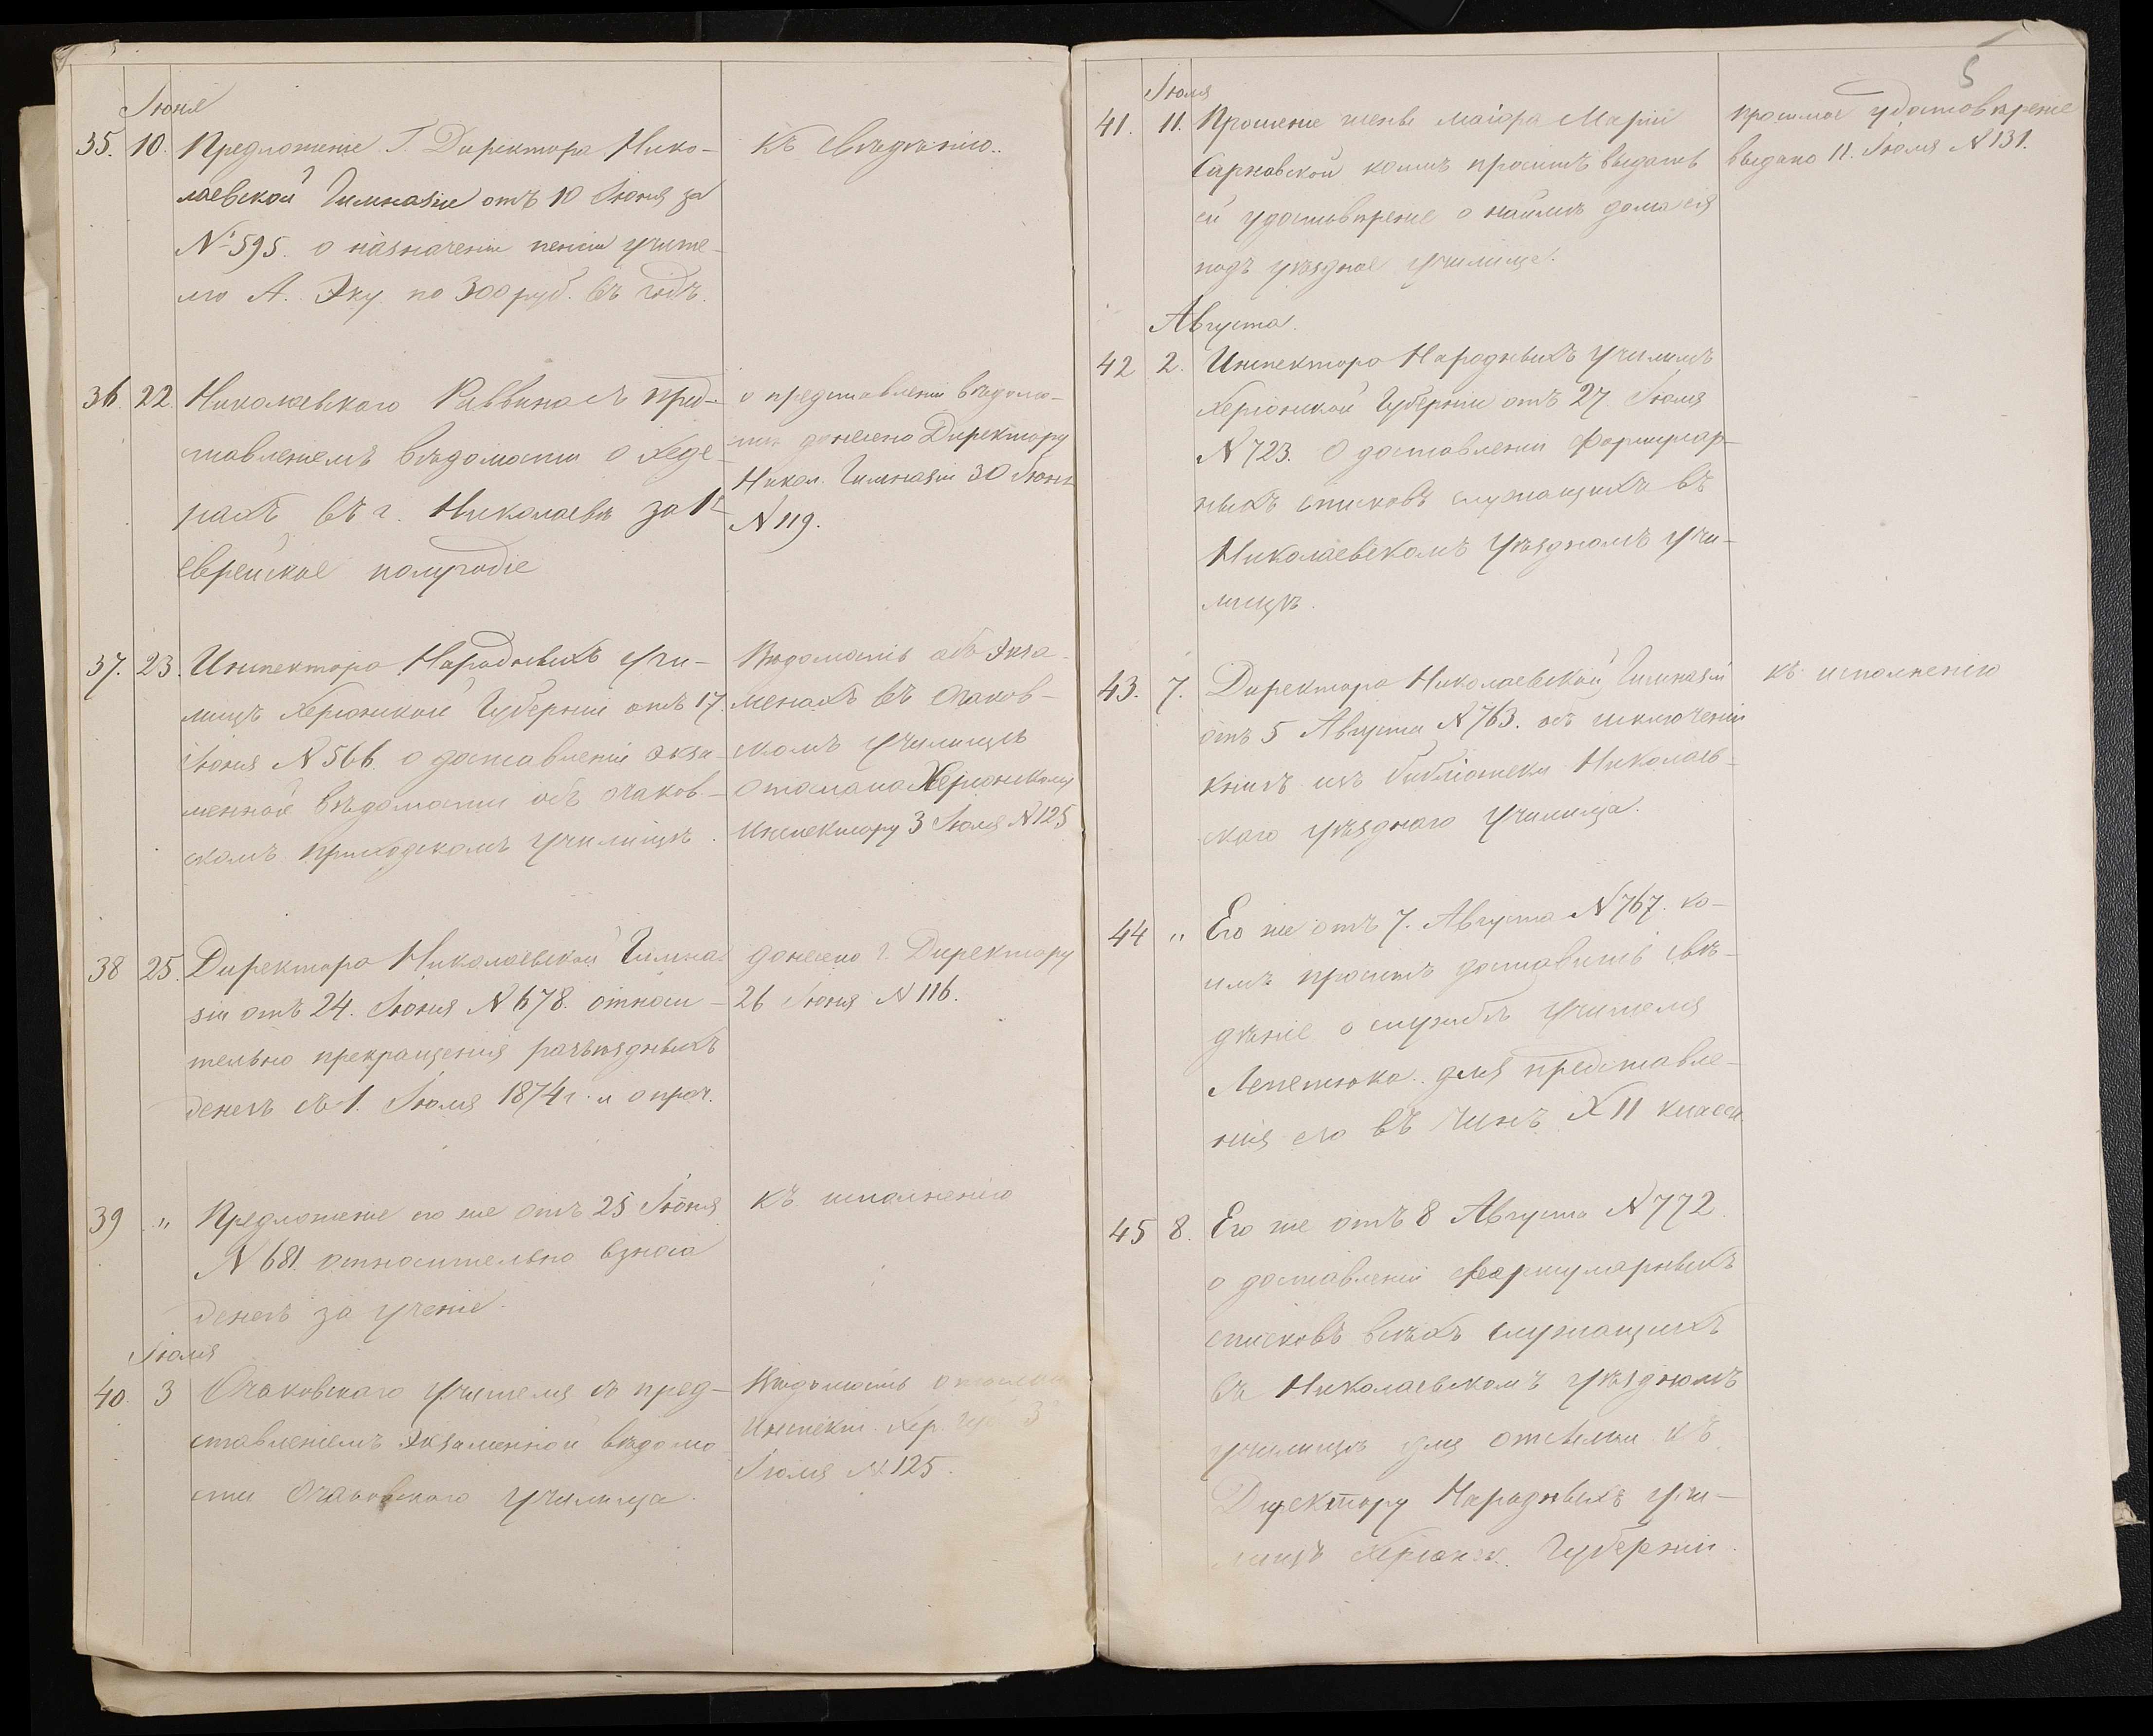 Іюня
35. 10. Предложеніе Г. Директора Нико-
лаевской Гимназіи отъ 10 Іюня за
№ 595. о назначеніи пенсіи учите-
лю А. Эку по 300 руб. въ годъ.
Къ свѣдѣнію.
36. 22. Николаевского Раввина съ пред-
ставленіемъ вѣдомости о хеде-
рахъ въ г. Николаевѣ за 1е
еврейское полугодіе
о представленіи вѣдомо-
сти донесено Директору
Никол. Гимназіи 30 Іюня
N 119.
37. 23. Инспектора Народныхъ Учи-
лищъ Херсонской Губерніи отъ 17
Іюня N 566. о доставленіи экза-
менной вѣдомости объ очаков-
скомъ приходскомъ училищѣ.
Вѣдомость объ экза-
менахъ въ Очаков-
скомъ училищѣ
отослана Херсонскому
Инспектору 3 Іюля N 125
38 25. Директора Николаевской Гимна-
зіи отъ 24. Іюня N 678. относи-
тельно прекращенія разъѣздныхъ
денегъ съ 1. Іюля 1874 г. и о проч.
донесено г. Директору
26 Іюня N 116.
39 " Предложеніе его же отъ 25 Іюня
N 681. относительно взноса
денегъ за ученіе.
Къ исполненію
Іюля
40. 3 Очаковскаго учителя съ пред-
ставленіемъ экзаменной вѣдомо-
сти Очаковского училища.
Вѣдомость отослана
Инспект. Хер. Губ. 3
Іюля N. 125.
5
Іюля
41. 11. Прошеніе жены маіора Маріи
Сарнавской коимъ проситъ выдать
ей удостовѣреніе о наймѣ дома ея
подъ уѣздное училище.
просимое удостовѣреніе
выдано 11. Іюля N 131.
Августа.
42 2. Инспектора Народныхъ Училищъ
Херсонской Губерніи отъ 27. Іюля
N 723. О доставленіи Формуляр-
ныхъ списковъ служащихъ въ
Николаевскомъ Уѣздномъ Учи-
лищѣ.
43. 7. Директора Николаевской Гимназіи
отъ 5 Августа N 763. объ исключеніи
книгъ изъ библіотеки Николаев-
ского уѣзднаго Училища.
къ исполненію
44 " Его же отъ 7. Августа N 767. ко-
имъ проситъ доставить свѣ-
дѣніе о службѣ Учителя
Лепетюка.. для представле-
нія его въ чинъ XII класса.
45 8. Его же отъ 8 Августа N 772.
о доставленіи формулярныхъ
списковъ всѣхъ служащихъ
въ Николаевскомъ уѣздномъ
училищѣ для отсылки къ
Директору Народныхъ учи-
лищъ Херсонск. Губерніи.